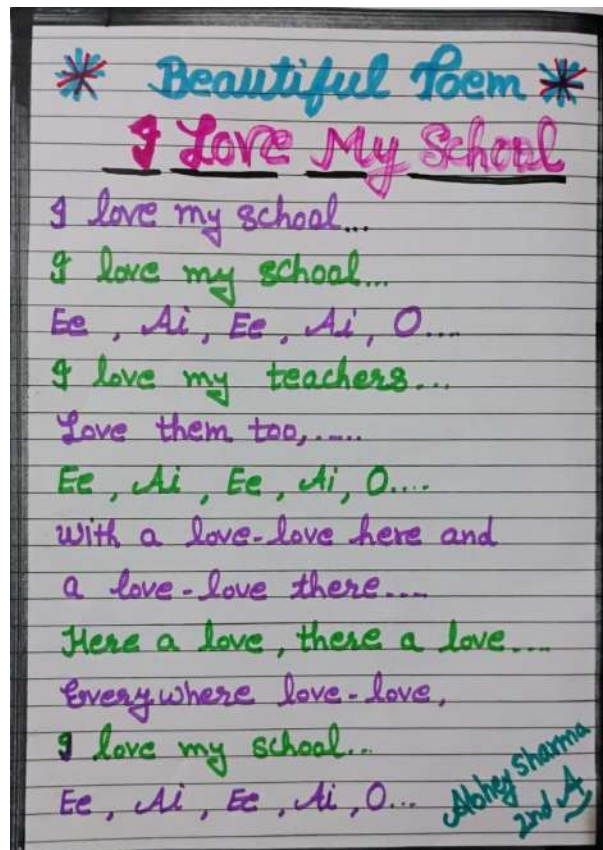 Beautiful Poem
I Love My School
I love my school...
I love my school...
Ee, Ai, Ee, Ai, O....
I love my teachers...
Love them too,.....
Ee, Ai, Ee, Ai, O....
With a love-love here and
a love-love there....
Here a love, there a love....
Everywhere love-love,
I love my school...
Ee, Ai, Ee, Ai, O...
Abhey Sharma
2nd A